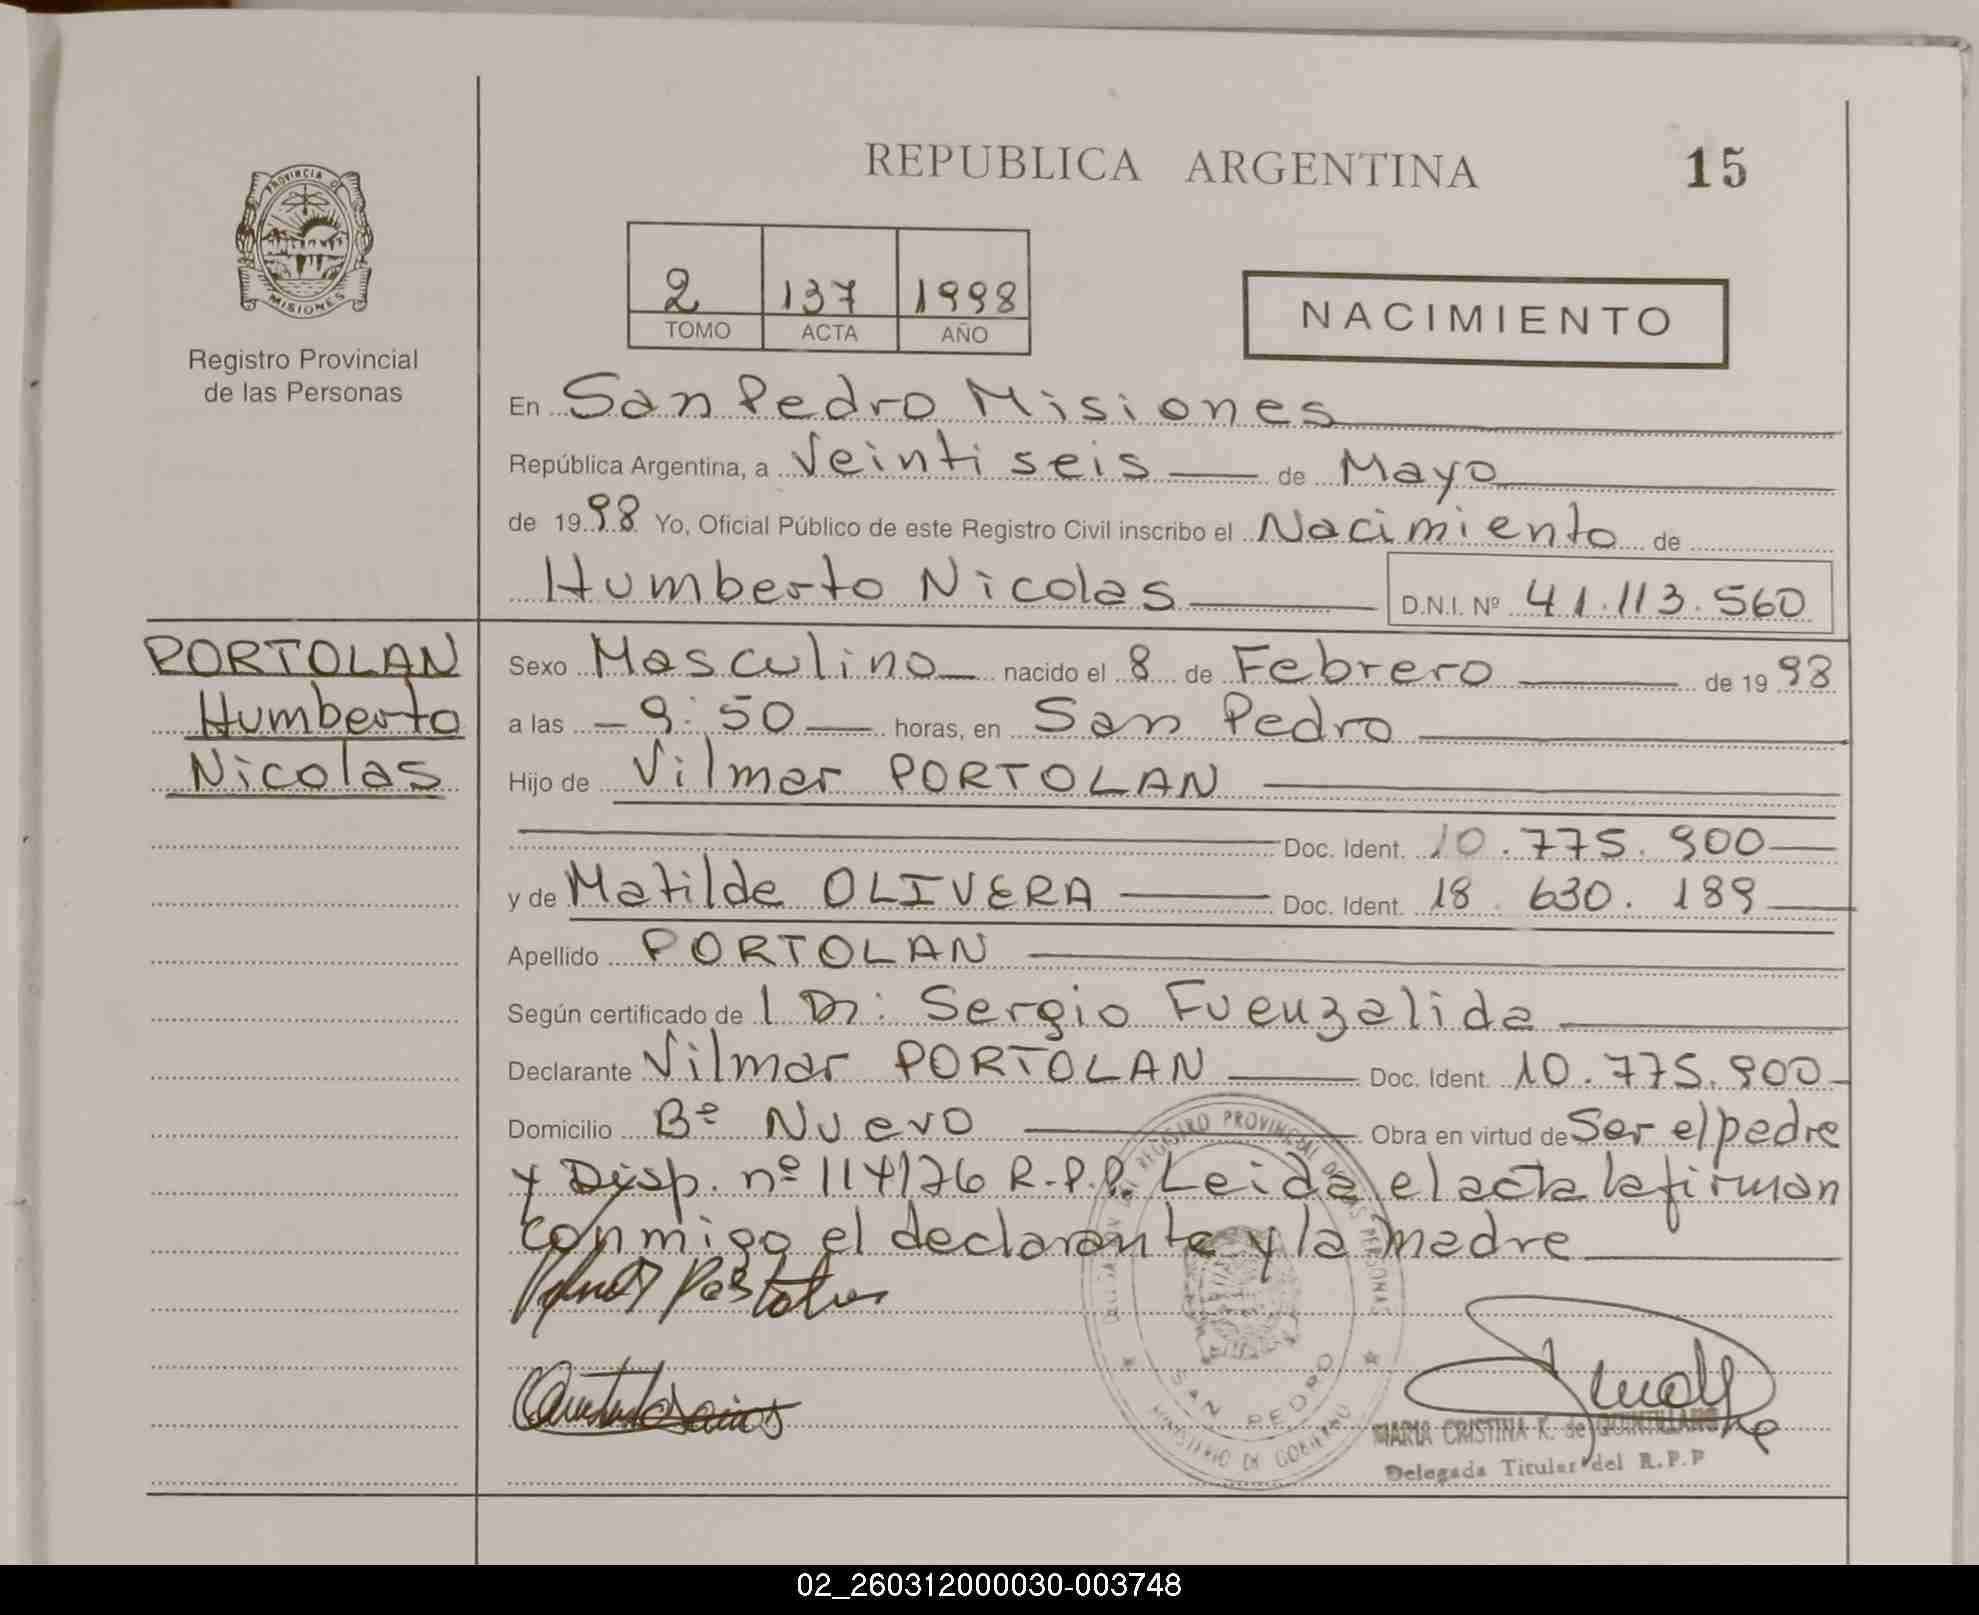 REPUBLICA ARGENTINA
15
PROVINCIA DE
MISIONES
Registro Provincial
de las Personas
2 137 1998
TOMO ACTA AÑO
NACIMIENTO
En San Pedro Misiones
República Argentina, a Veintiseis de Mayo
de 1998 Yo, Oficial Público de este Registro Civil inscribo el Nacimiento de
Humberto Nicolas D.N.I. Nº 41.113.560
PORTOLAN
Humberto
Nicolas
Sexo Masculino nacido el 8 de Febrero de 1998
a las 9:50 horas, en San Pedro
Hijo de Vilmar PORTOLAN
Doc. Ident. 10.775.900
y de Matilde OLIVERA Doc. Ident. 18.630.189
Apellido PORTOLAN
Según certificado de l Dr: Sergio Fuenzalida
Declarante Vilmar PORTOLAN Doc. Ident. 10.775.900
Domicilio Bº Nuevo Obra en virtud de Ser el padre
y Disp. nº 114/76 R.P.P. Leida el acta la firman
conmigo el declarante y la madre
REGISTRO PROVINCIAL DE LAS PERSONAS
SAN PEDRO
MINISTERIO DE GOBIERNO
MARIA CRISTINA K. de QUINTILLANO
Delegada Titular del R.P.P
02_260312000030-003748